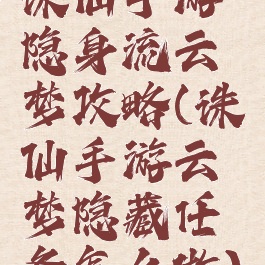 诛仙手游
隐身流云
梦攻略(诛
仙手游云
梦隐藏任
务怎么做)